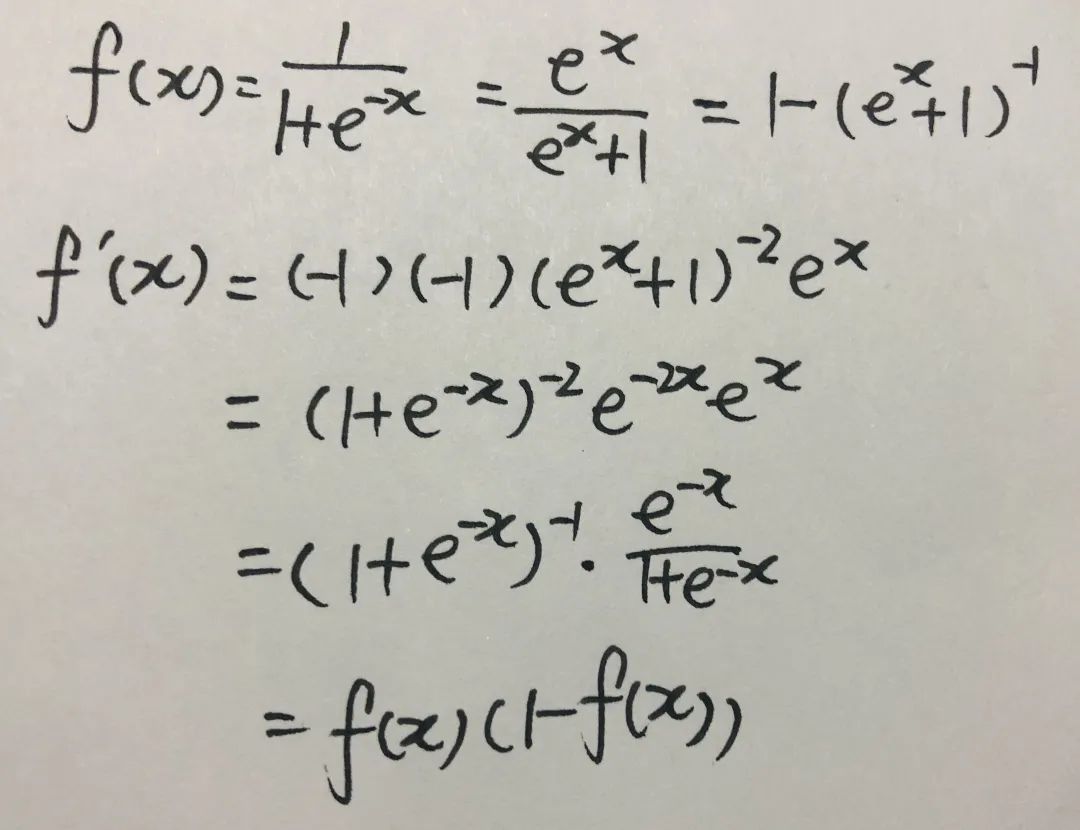 f(x) = \frac{1}{1+e^{-x}} = \frac{e^x}{e^x+1} = 1-(e^x+1)^{-1}
f'(x) = (-1)(-1)(e^x+1)^{-2}e^x
= (1+e^{-x})^{-2}e^{-2x}e^x
= (1+e^{-x})^{-1} · \frac{e^{-x}}{1+e^{-x}}
= f(x)(1-f(x))